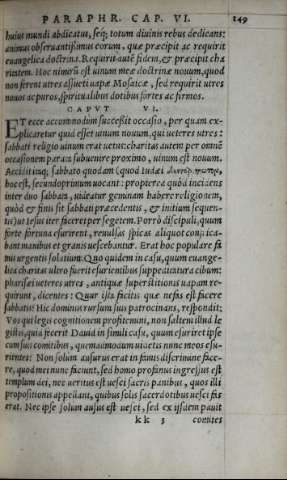 PARAPHR. CAP. VI. 149
huius mundi abdicatus, seq; totum diuinis rebus dedicans:
animus obseruantissimus eorum, quæ præcipit ac requirit
euangelica doctrina. Requirit autē fidem, et præcipit cha
ritatem. Hoc nimirū est uinum meæ doctrinæ nouum, quod
non ferent utres assueti uapæ Mosaicæ, sed requirit utres
nouos ac puros, spiritualibus dotibus fortes ac firmos.
CAPVT VI.
ET ecce accommodum successit occasio, per quam ex=
plicaretur quid esset uinum nouum, qui ueteres utres:
sabbati religio uinum erat uetus: charitas autem per omnē
occasionem parata subuenire proximo, uinum est nouum.
Accidit itaq; sabbato quodam (quod Iudæi
hoc est, secundoprimum uocant: propterea quòd incidens
inter duo sabbata, uideatur geminam habere religionem,
quòd et finis sit sabbati præcedentis, et initium sequen=
tis) ut Iesus iter faceret per segetem. Porrò discipuli, quum
forte fortuna esurirent, reuulsas spicas aliquot confrica=
bant manibus et granis uescebantur. Erat hoc populare fa
mis urgentis solatium. Quo quidem in casu, quum euange=
lica charitas ultro fuerit esurientibus suppeditatura cibum:
pharisæi ueteres utres, antiquæ superstitionis uapam re=
quirunt, dicentes: Quur ista facitis quæ nefas est facere
sabbatis? Hic dominus rursum suis patrocinans, respondit:
Vos qui legis cognitionem profitemini, non saltem illud le
gistis, quid fecerit Dauid in simili casu, quum esuriret ipse
cum suis comitibus, quemadmodum uidetis nunc meos esu=
rientes? Non solum ausurus erat in famis discrimine face=
re, quod mei nunc faciunt, sed homo profanus ingressus est
templum dei, nec ueritus est uesci sacris panibus, quos illi
propositionis appellant, quibus solis sacerdotibus uesci fas
erat. Nec ipse solum ausus est uesci, sed ex ijsdem pauit
kk 3 comites